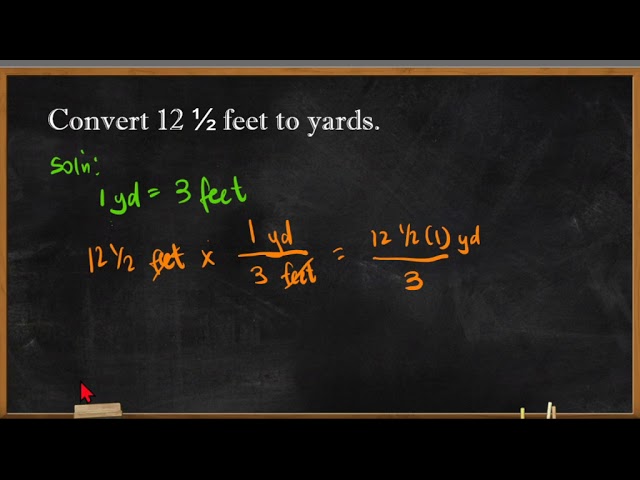 Convert 12 ½ feet to yards.
Soln:
1 yd = 3 feet
12 1/2 feet x 1 yd / 3 feet = 12 1/2 (1) yd / 3